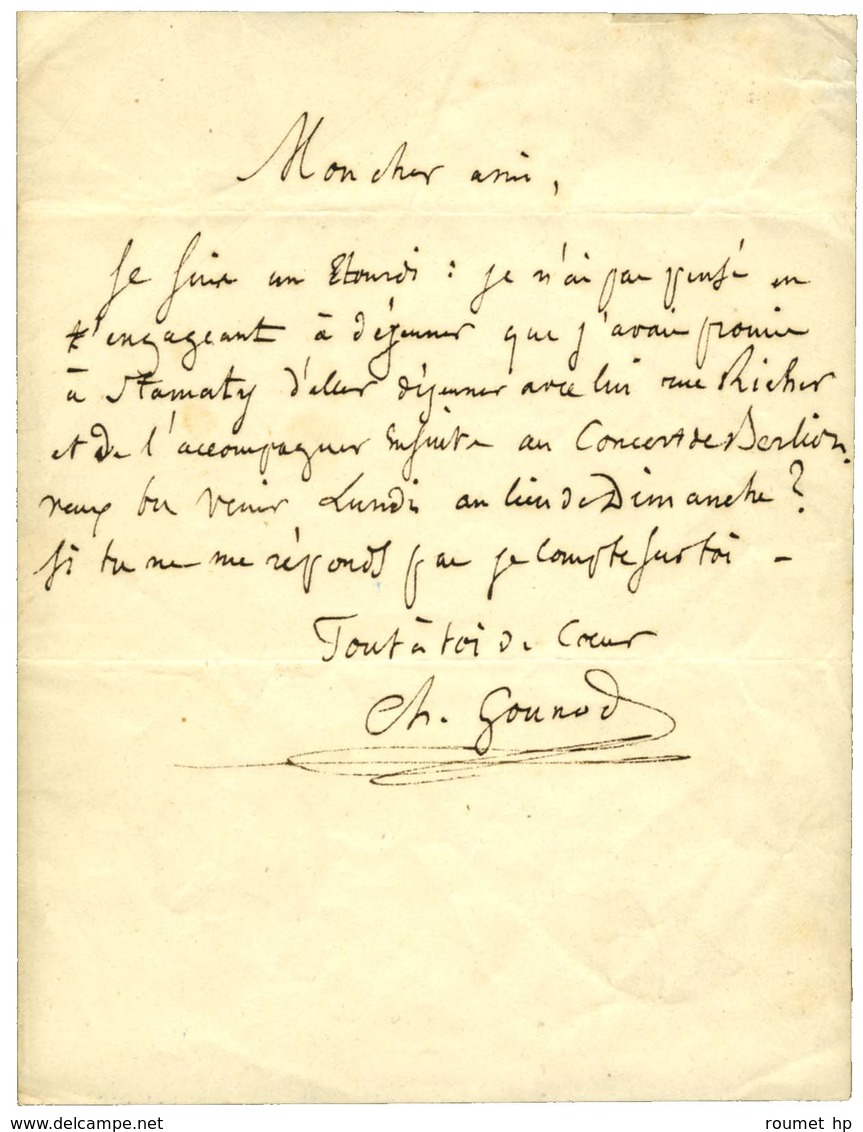 Mon cher ami,
Je suis un Etourdi : je n'ai pas pensé en
t'engageant à déjeuner que j'avais promis
à Stamaty d'aller déjeuner avec lui rue Richer
et de l'accompagner ensuite au Concert de Berlioz.
veux tu venir Lundi au lieu de Dimanche ?
Si tu ne me réponds pas je compte sur toi –
Tout à toi de Coeur
Ch. Gounod
roumet hp